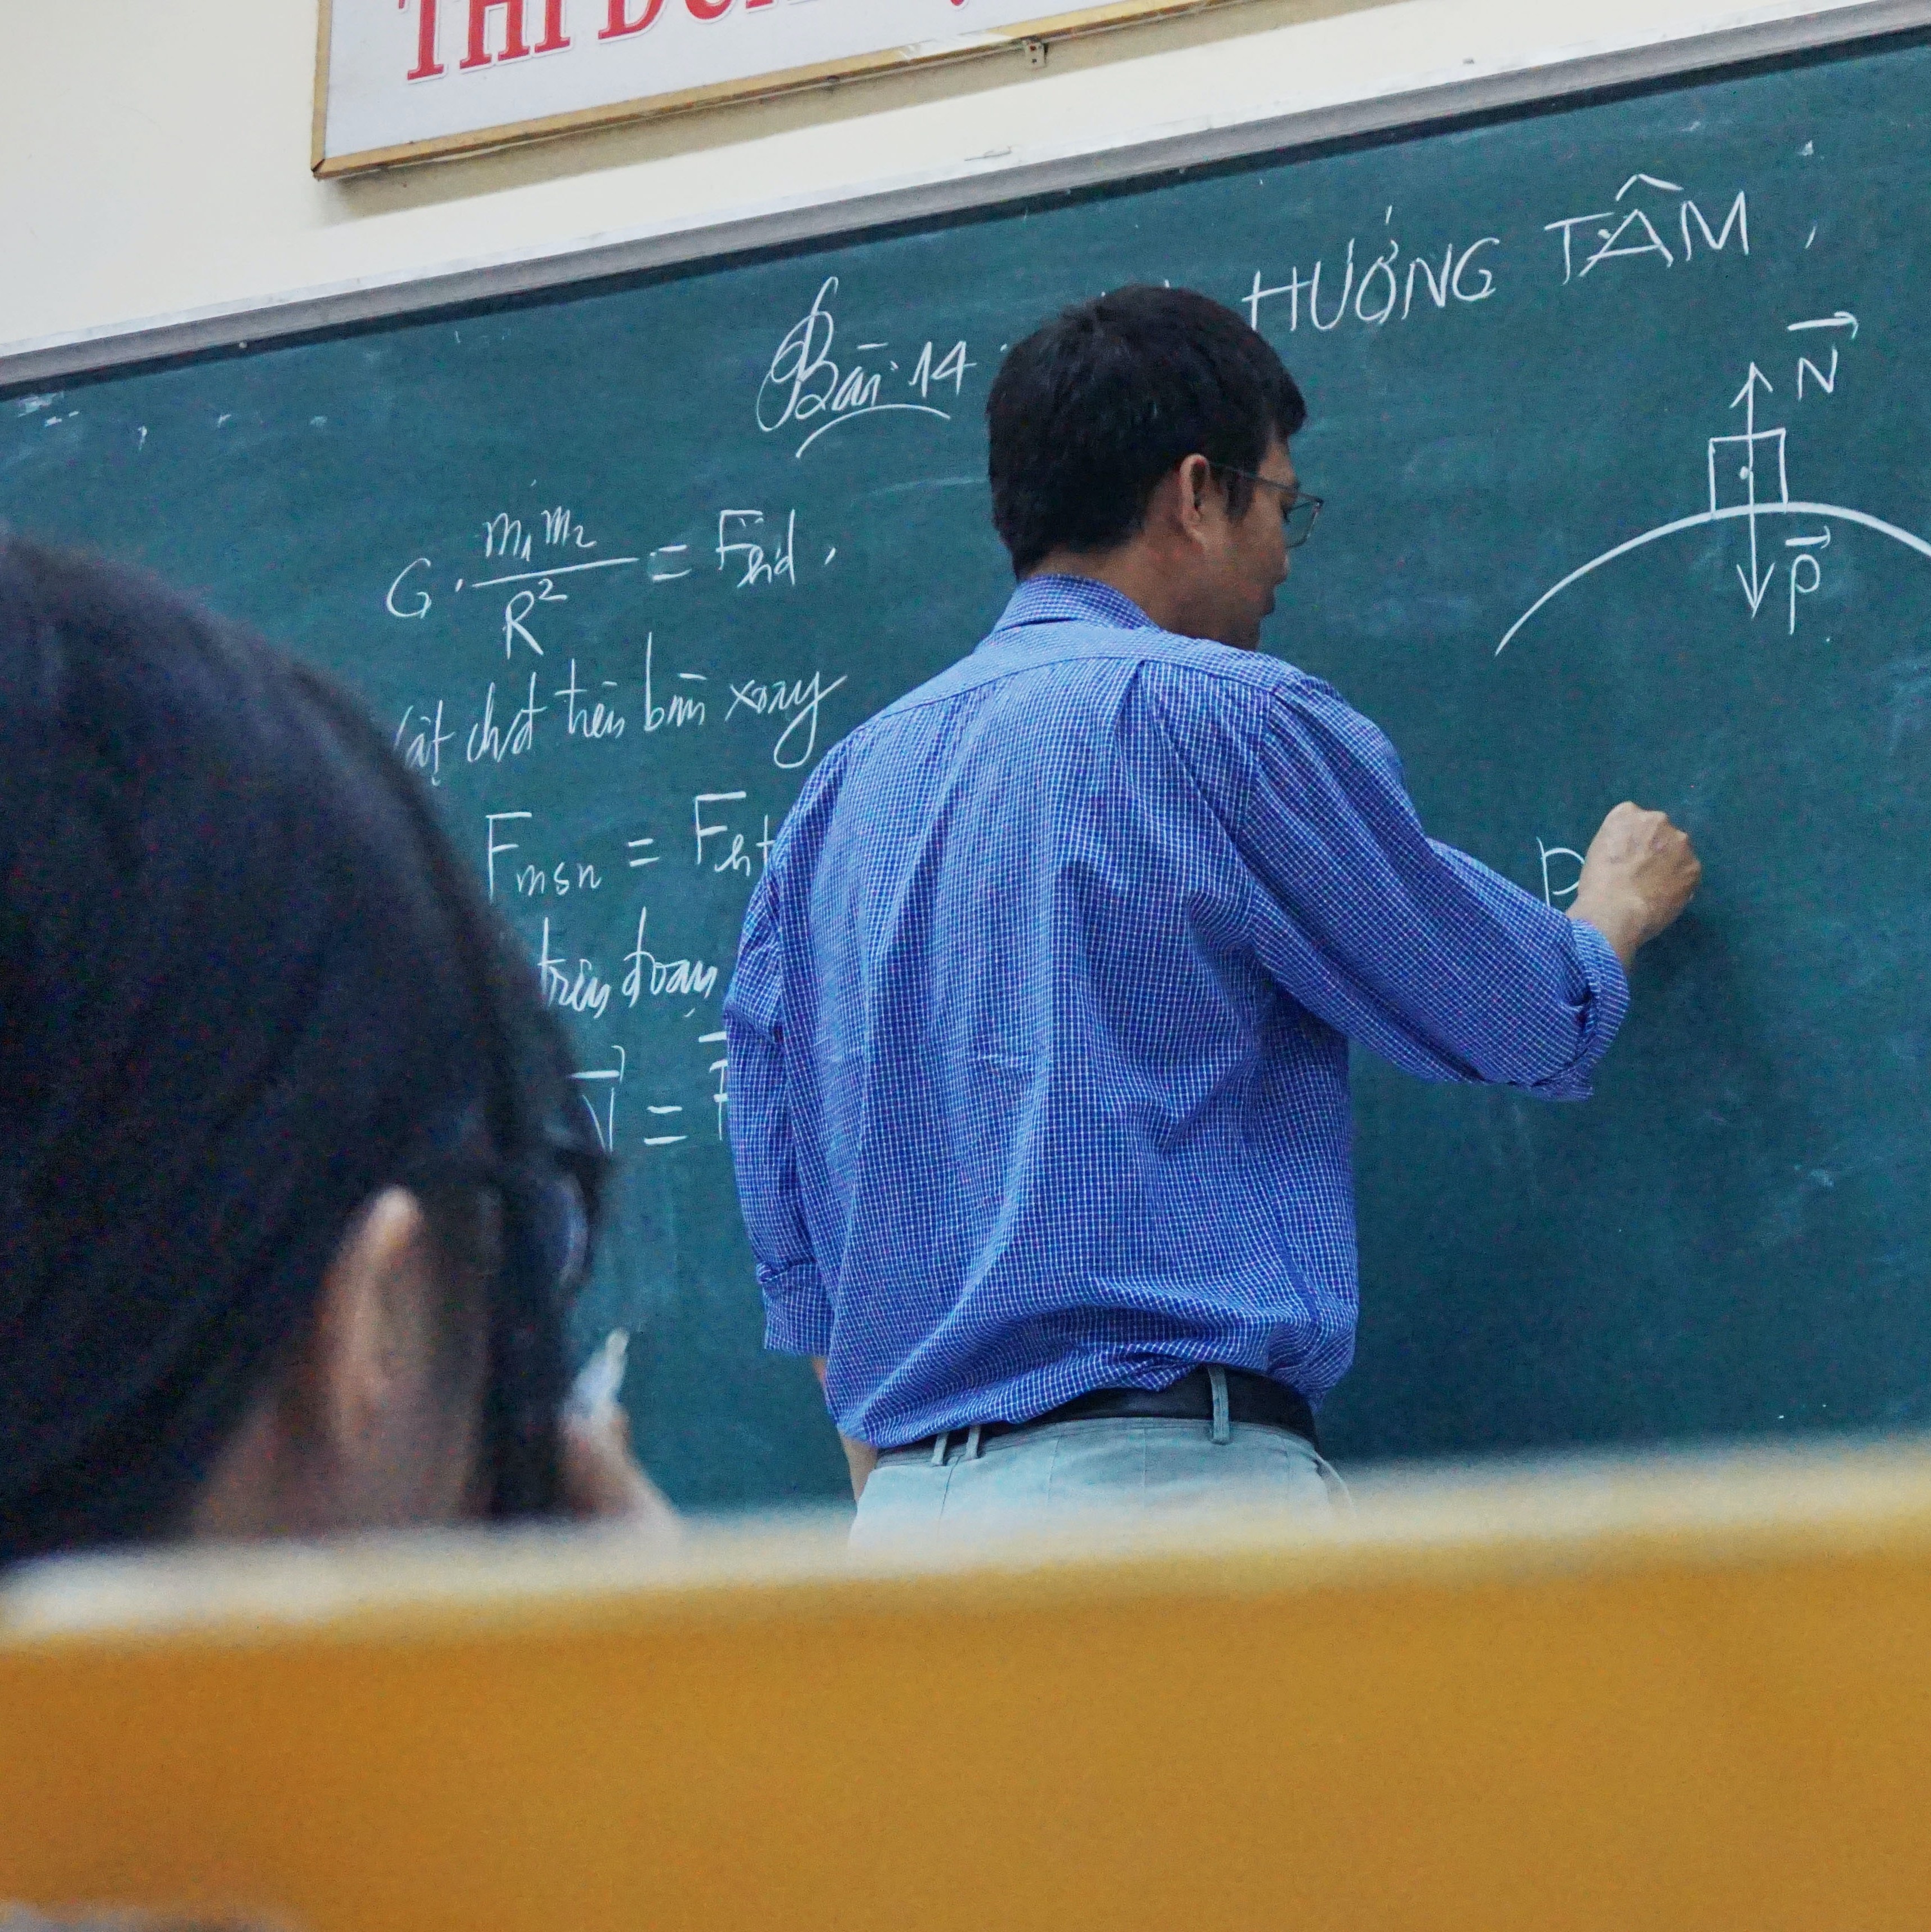 THI
Bài 14 HƯỚNG TÂM
N
G. m₁m₂ / R² = Fhd
P
chất trên bàn xoay
Fmsn = Fht
P
trên đoạn
N =